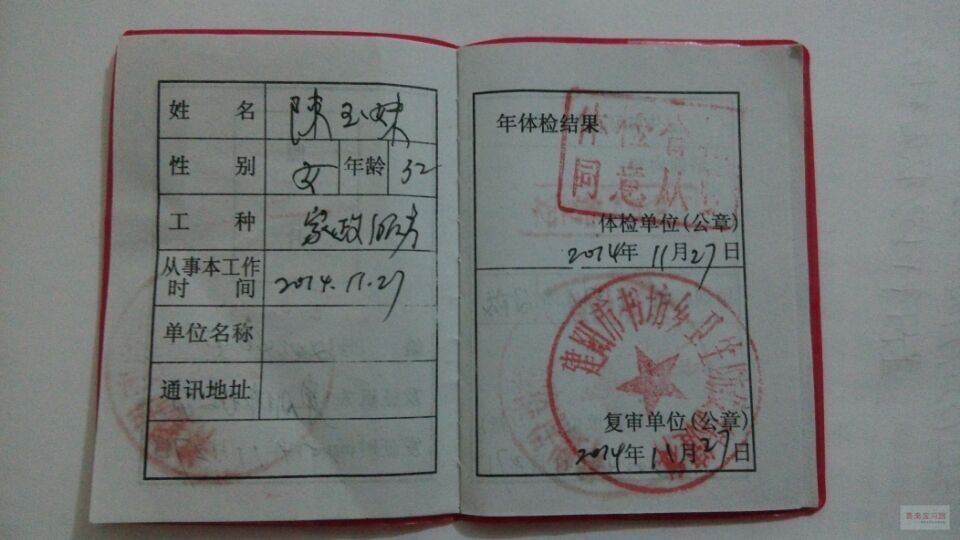 姓名 陳玉妹
性别 女 年龄 32
工种 家政服务
从事本工作时间 2014.11.27
单位名称
通讯地址
年体检结果
体检合
同意从
体检单位(公章)
2014年11月27日
建阳市书坊乡卫生院
复审单位(公章)
2014年11月27日